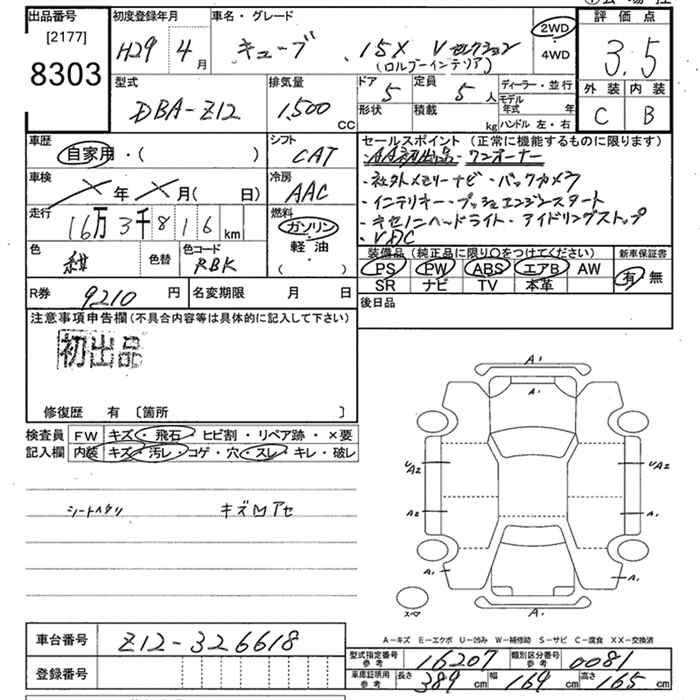 ①会場控
出品番号 [2177] 8303
初度登録年月 H29年 4月
車名・グレード キューブ 15X Vセレクション (ロルブーインテリア)
2WD ・ 4WD
評価点 3.5
外装 C 内装 B
型式 DBA-Z12
排気量 1,500 CC
ドア 5 形状
定員 5人 積載 kg
ディーラー・並行
モデル年式 年
ハンドル 左・右
車歴 自家用・( )
シフト CAT
車検 年 月( 日)
冷房 AAC
走行 16万3千816 km
燃料 ガソリン・軽油・( )
色 紺 色替 色コード RBK
セールスポイント (正常に機能するものに限ります)
・AA初出品・ワンオーナー
・社外メモリーナビ・バックカメラ
・インテリキー・プッシュエンジンスタート
・キセノンヘッドライト・アイドリングストップ
・VDC
装備品(純正品に限り○をつけてください)
PS PW ABS エアB AW
SR ナビ TV 本革
新車保証書 有・無
R券 9210 円
名変期限 月 日
後日品
注意事項申告欄(不具合内容等は具体的に記入して下さい)
初出品
修復歴 有 〔箇所 〕
検査員記入欄
FW キズ・飛石・ヒビ割・リペア跡・×要
内装 キズ・汚レ・コゲ・穴・スレ・キレ・破レ
シートヘタリ キズロアセ
A1
A1
UA2 UA2
A2 A1
A1 A1
スペア A1
A-キズ E-エクボ U-凹み W-補修跡 S-サビ C-腐食 XX-交換済
車台番号 Z12-326618
登録番号
型式指定番号 参考 16207
類別区分番号 参考 0081
車庫証明用 参考 長さ 389 cm 幅 169 cm 高さ 165 cm